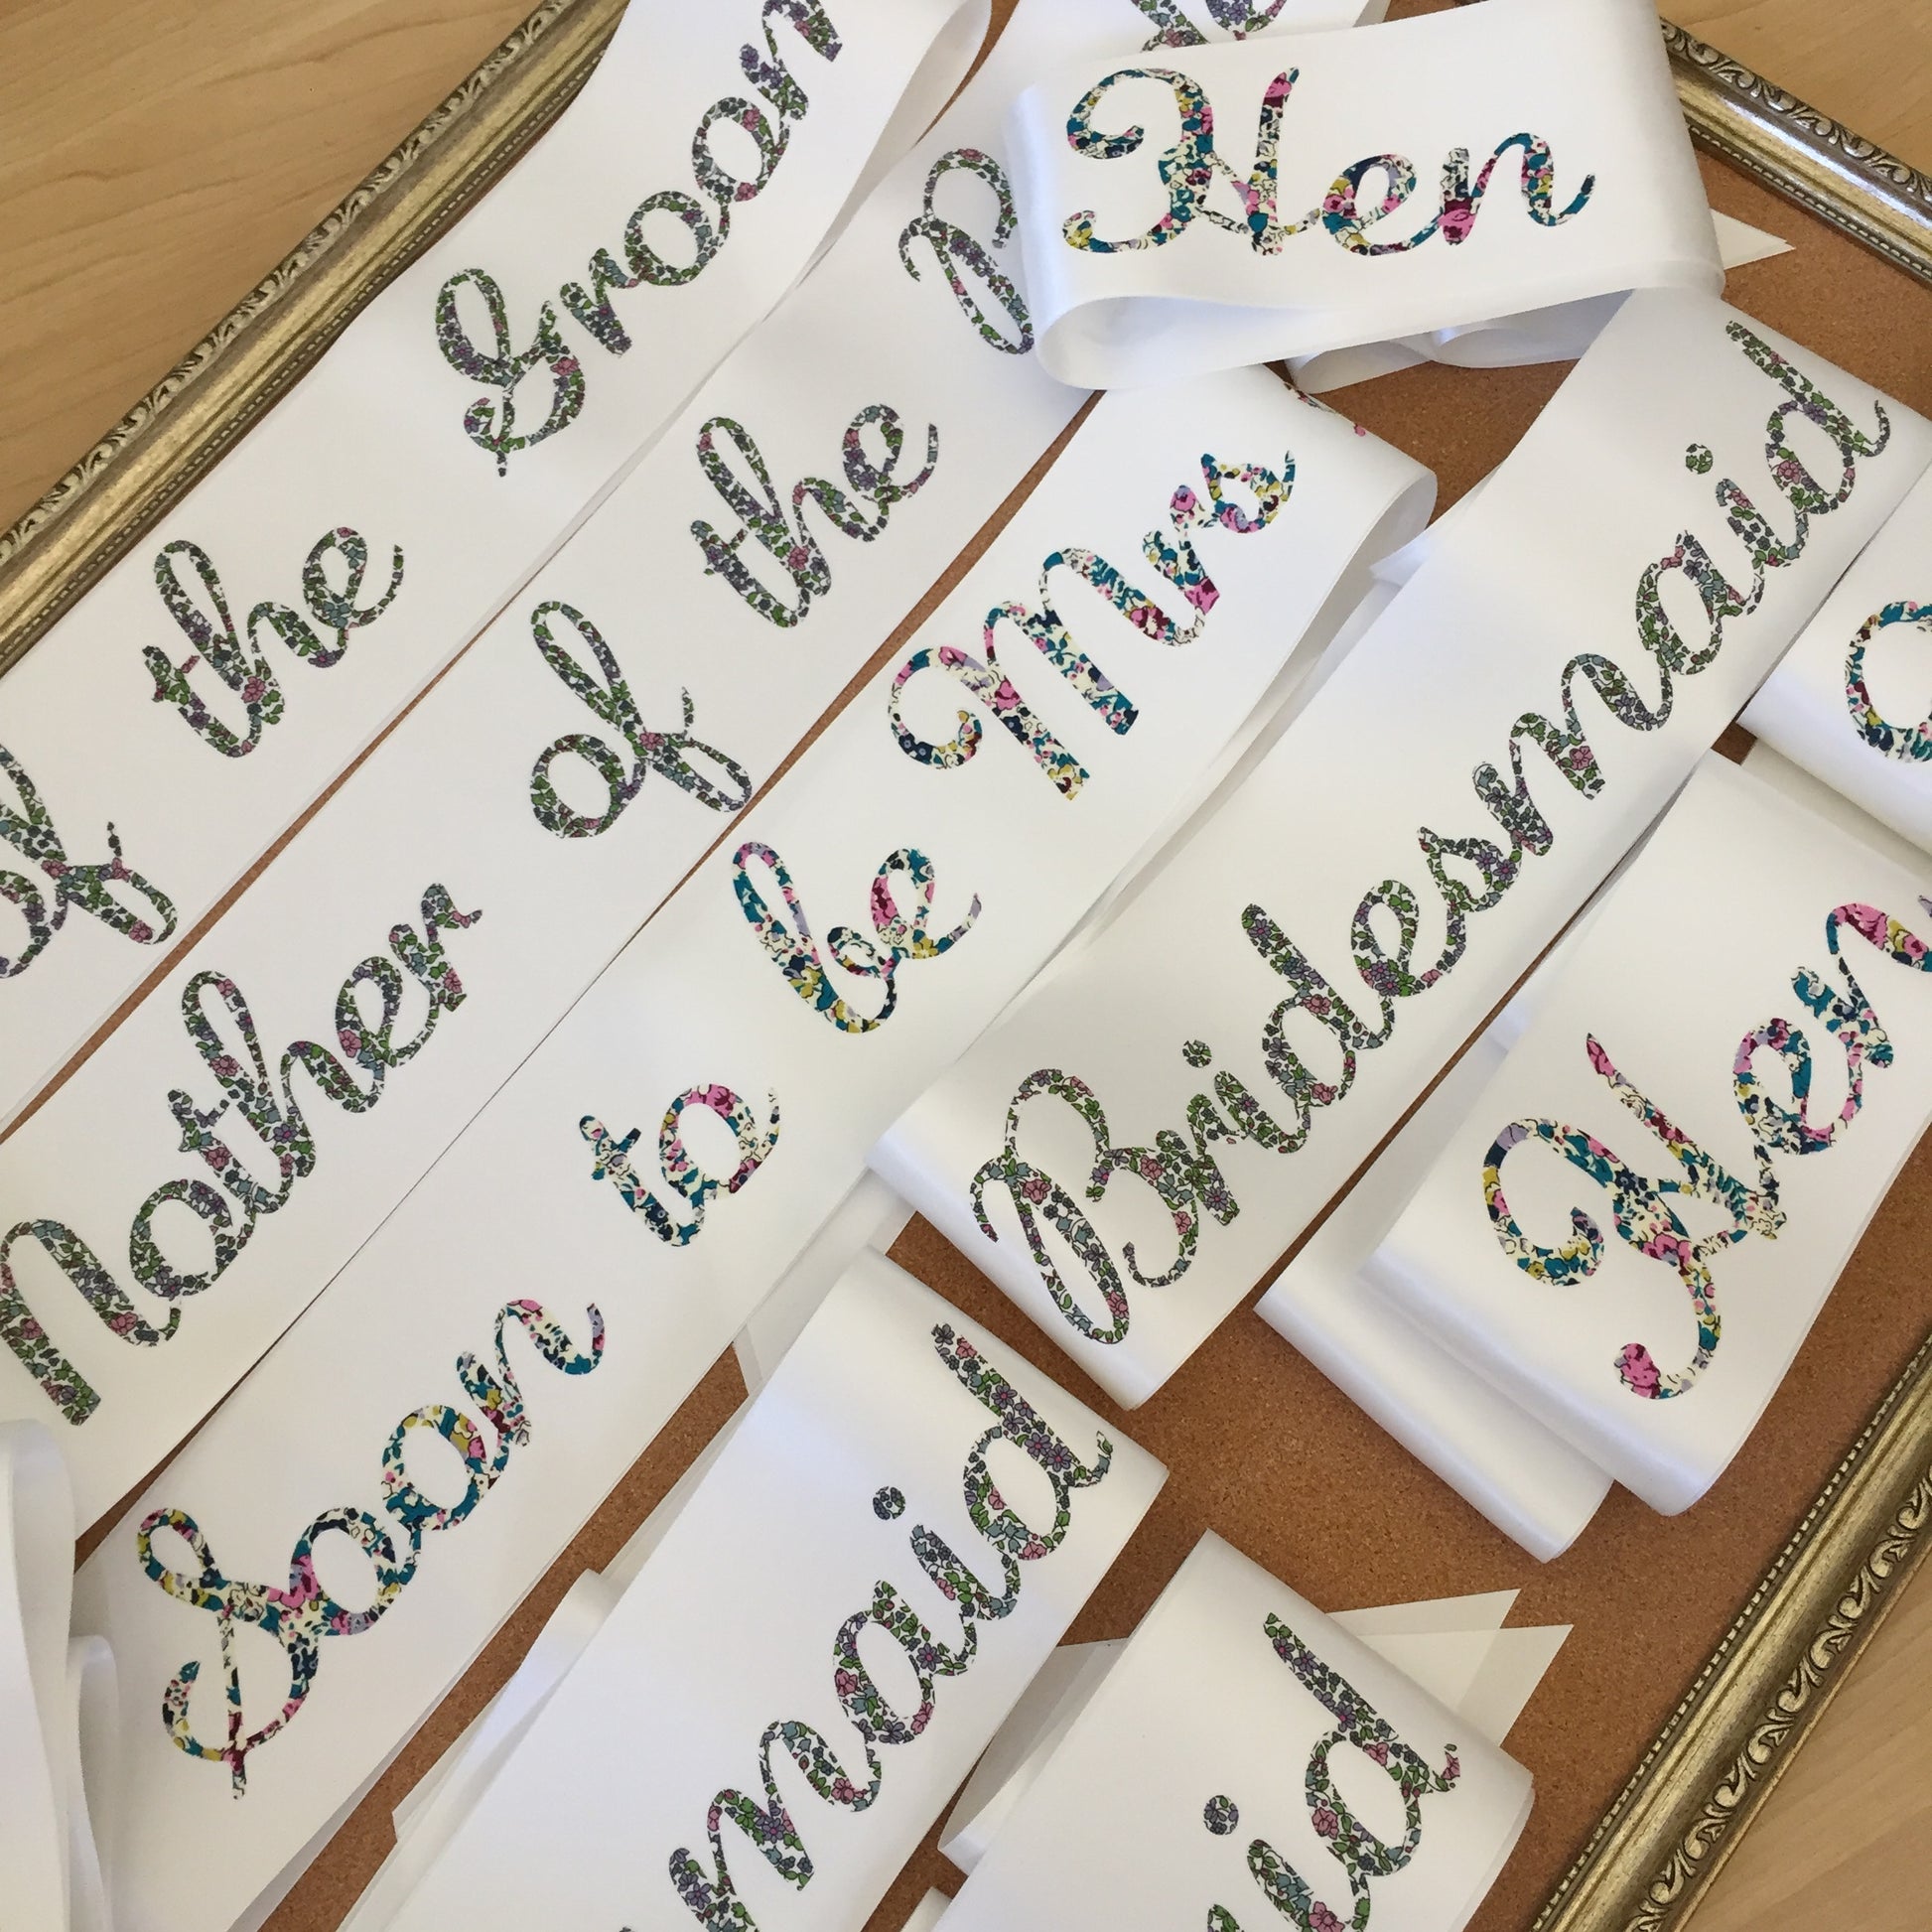 of the Groom
Mother of the
Hen
Soon to be Mrs
Bridesmaid
Hen
maid
id